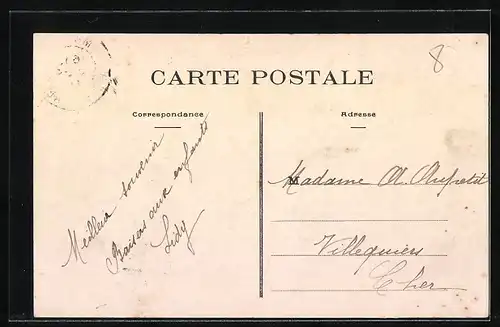 8
CARTE POSTALE
Correspondance
Adresse
Meilleur souvenir
Baisers aux enfants
Lidy
Madame A. Aufretit
Villequiers
Cher